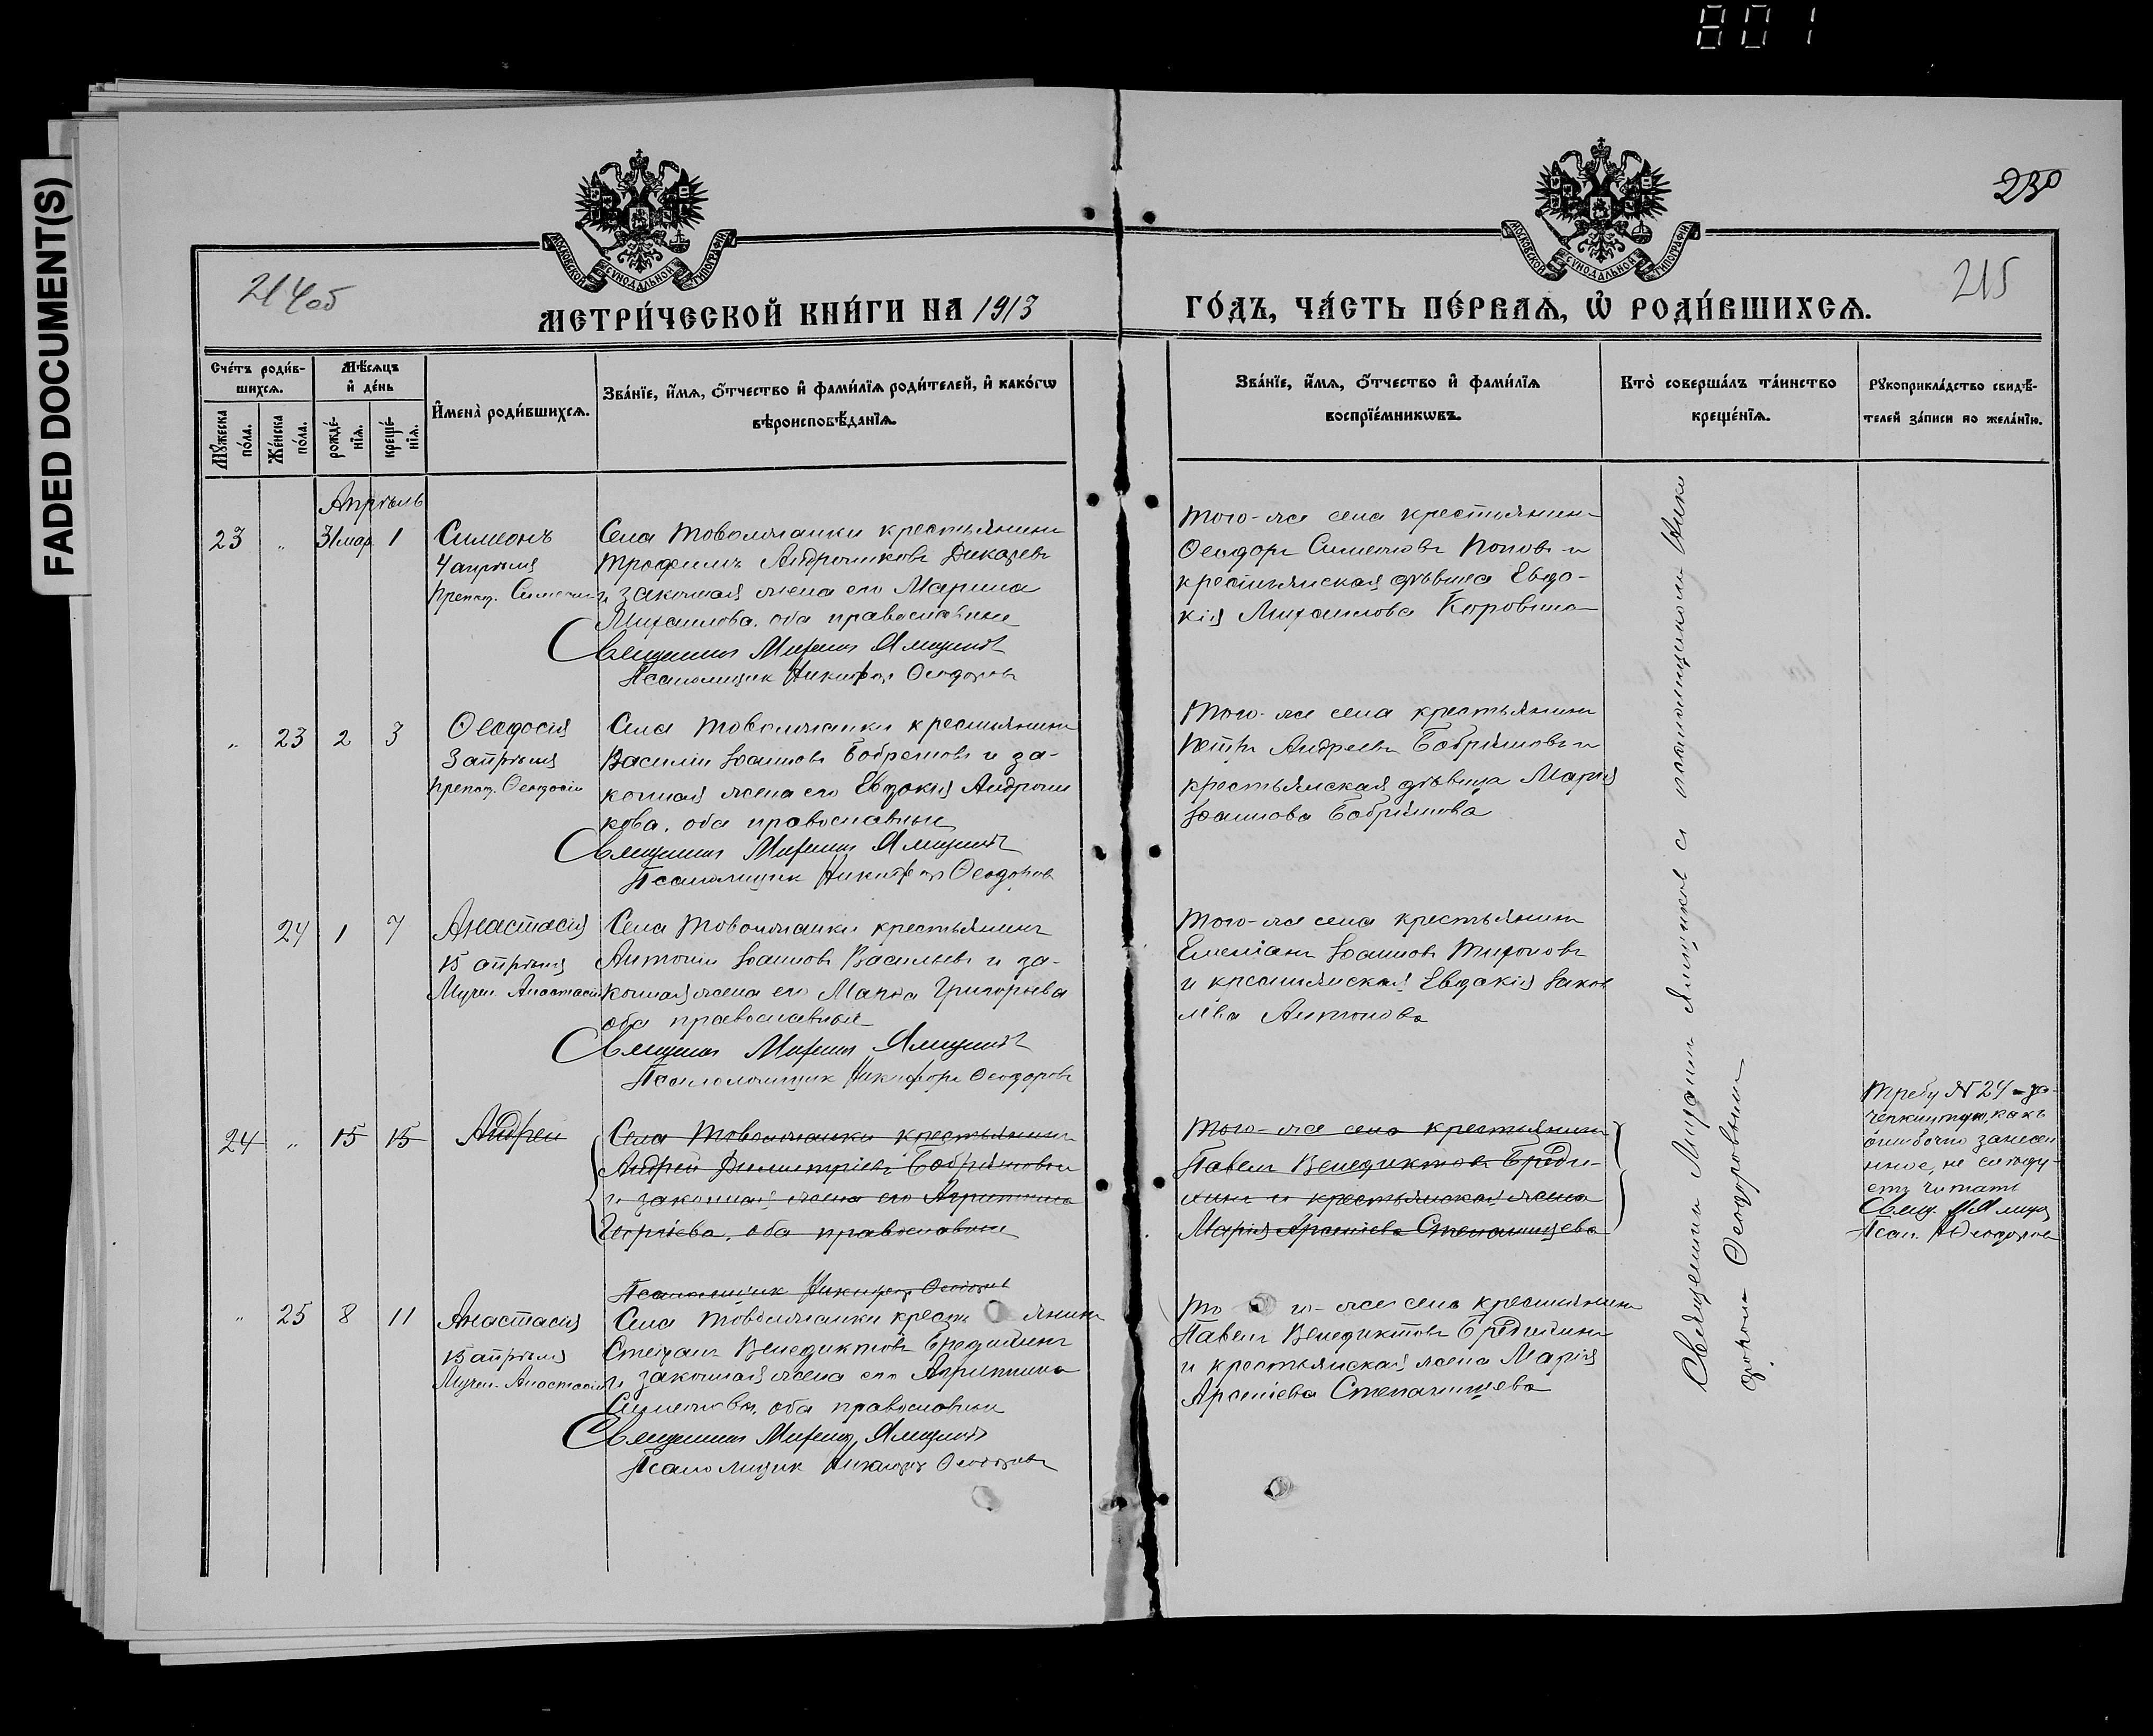 801
FADED DOCUMENT(S)
230
214об
215
МОСКОВСКОЙ СѴНОДАЛЬНОЙ ТИПОГРАФІИ
МОСКОВСКОЙ СѴНОДАЛЬНОЙ ТИПОГРАФІИ
МЕТРИ́ЧЕСКОЙ КНИ́ГИ НА 1913
ГО́ДЪ, ЧА́СТЬ ПЕ́РВАѦ, Ѡ҆ РОДИ́ВШИХСѦ.
Сче́тъ роди́в-
шихсѧ.
Мꙋ́жеска
по́ла.
Же́нска
по́ла.
Мѣ́сѧцъ
и҆ де́нь
рожде́-
нїѧ.
креще́-
нїѧ.
И҆мена̀ роди́вшихсѧ.
Зва́нїе, и҆́мѧ, ѻ҆́тчество и҆ фами́лїѧ роди́телей, и҆ како́гѡ
вѣроисповѣ́данїѧ.
Зва́нїе, и҆́мѧ, ѻ҆́тчество и҆ фами́лїѧ
воспрїе́мникѡвъ.
Кто̀ соверша́лъ та́инство
креще́нїѧ.
Рꙋкоприкла́дство свидѣ́-
телей за́писи по жела́нїю.
Апрѣль
23 „ 31 мар 1 Симеонъ
4 апрѣля
Препод. Симеона
Села Товолжанки крестьянинъ
Трофимъ Андрониковъ Дикаревъ
и законная жена его Марина
Михаилова, оба православные
Священникъ Михаилъ Ямщиковъ
Псаломщикъ Никифоръ Ѳеодоровъ
Того-же села крестьянинъ
Ѳеодоръ Симеоновъ Поповъ и
крестьянская дѣвица Евдо-
кія Михаилова Коровина
„ 23 2 3 Ѳеодосія
3 апрѣля
Препод. Ѳеодосіи
Села Товолжанки крестьянинъ
Василій Іоанновъ Бобрешовъ и за-
конная жена его Евдокія Андрони
кова, оба православные
Священникъ Михаилъ Ямщиковъ
Псаломщикъ Никифоръ Ѳеодоровъ
Того-же села крестьянинъ
Петръ Андреевъ Бобрѣшовъ и
крестьянская дѣвица Марія
Іоаннова Бобрѣшова
24 1 7 Анастасія
15 апрѣля
Мучен. Анастасіи
Села Товолжанки крестьянинъ
Антоній Іоанновъ Васильевъ и за-
конная жена его Марѳа Григорьева
оба православные
Священникъ Михаилъ Ямщиковъ
Псаломщикъ Никифоръ Ѳеодоровъ
Того-же села крестьянинъ
Емеліанъ Іоанновъ Тихоновъ
и крестьянская Евдокія Іаков
лева Антонова
24 „ 15 15 Андрей
Села Товолжанки крестьянинъ
Андрей Димитріевъ Бобрѣшовъ
и законная жена его Агриппина
Георгіева, оба православные
Псаломщикъ Никифоръ Ѳеодоровъ
Того-же села крестьянинъ
Павелъ Венедиктовъ Бреди-
хинъ и крестьянская жена
Марія Арсеніева Степанищева
Требу № 24 за-
черкнутую, какъ
ошибочно занесен
ное, не слѣду-
етъ читать
Свящ. М Ямщи
Псал. Н Ѳеодоровъ
„ 25 8 11 Анастасія
15 апрѣля
Мучен. Анастасіи
Села Товолжанки крестьянинъ
Стефанъ Венедиктовъ Бредихинъ
и законная жена его Агриппина
Симеонова, оба православные
Священникъ Михаилъ Ямщиковъ
Псаломщикъ Никифоръ Ѳеодоровъ
Того-же села крестьянинъ
Павелъ Венедиктовъ Бредихинъ
и крестьянская жена Марія
Арсеніева Степанищева
Священникъ Михаилъ Ямщиковъ съ псаломщикомъ Ники
форомъ Ѳеодоровымъ